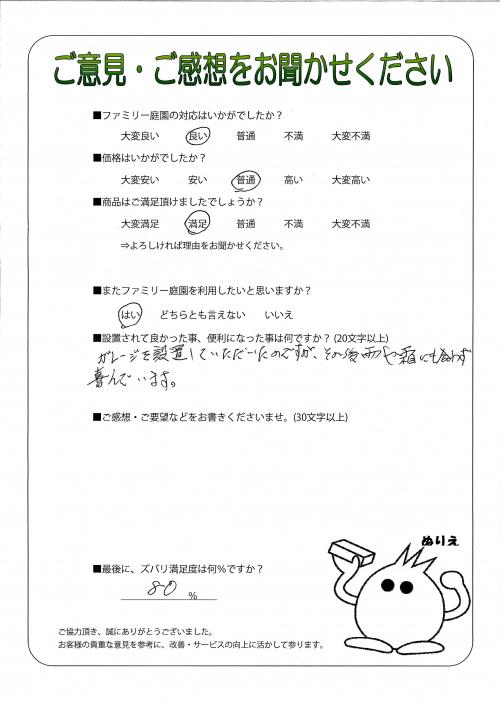 ご意見・ご感想をお聞かせください
■ファミリー庭園の対応はいかがでしたか？
大変良い 良い 普通 不満 大変不満
■価格はいかがでしたか？
大変安い 安い 普通 高い 大変高い
■商品はご満足頂けましたでしょうか？
大変満足 満足 普通 不満 大変不満
⇒よろしければ理由をお聞かせください。
■またファミリー庭園を利用したいと思いますか？
はい どちらとも言えない いいえ
■設置されて良かった事、便利になった事は何ですか？(20文字以上)
ガレージを設置していただいたのですが、その後雨や霜にも会わず
喜んでいます。
■ご感想・ご要望などをお書きくださいませ。(30文字以上)
ぬりえ
■最後に、ズバリ満足度は何％ですか？
80 ％
ご協力頂き、誠にありがとうございました。
お客様の貴重な意見を参考に、改善・サービスの向上に活かして参ります。